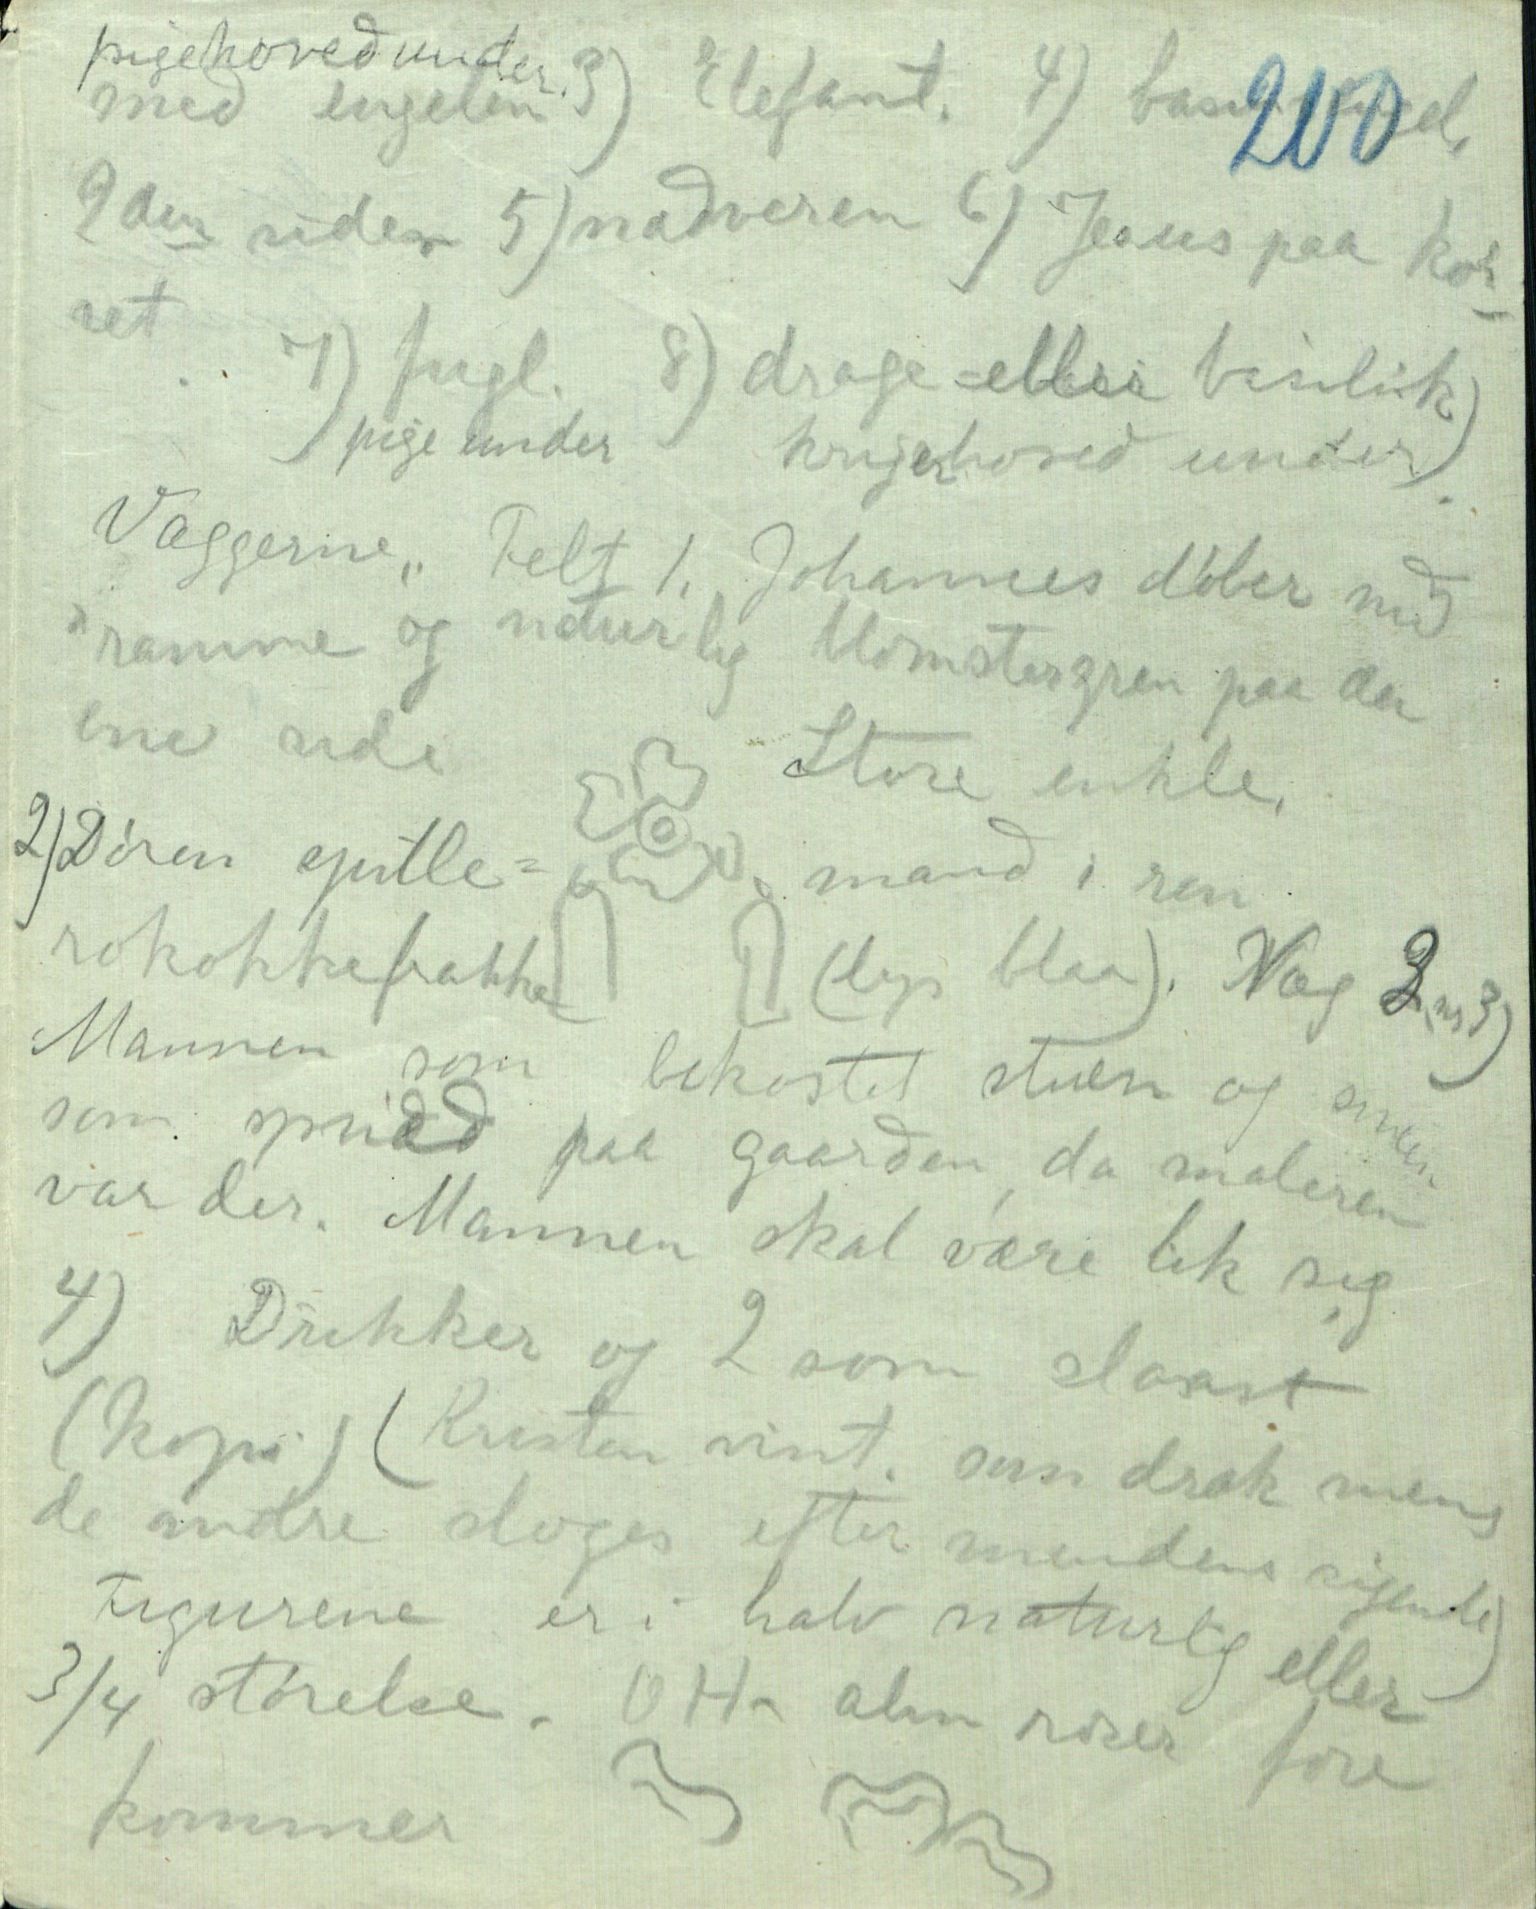 pigehoved under.
med engelen 3) Elefant. 4)
200
2den siden 5) nadveren 6) Jesus paa kor-
set. 7) fugl. 8) drage eller basilisk
pige under krigerhoved under).
Væggerne„ Felt 1. Johannes døber med
ramme og naturlig blomstergren paa den
ene side Store enkle.
2) Døren spille= mand i ren
rokokkofrakke (lys blaa). Væg 2. nr 3)
Mannen som bekostet stuen og
som paa gaarden, da maleren
var der. Mannen skal være lik sig
4) Drikker og 2 som slaast
(kopi) (Kristen vint. som drak mens
de andre sloges efter mundens sigende)
Figurene er i halv naturlig eller
3/4 størelse. OH- alm roser fore
kommer